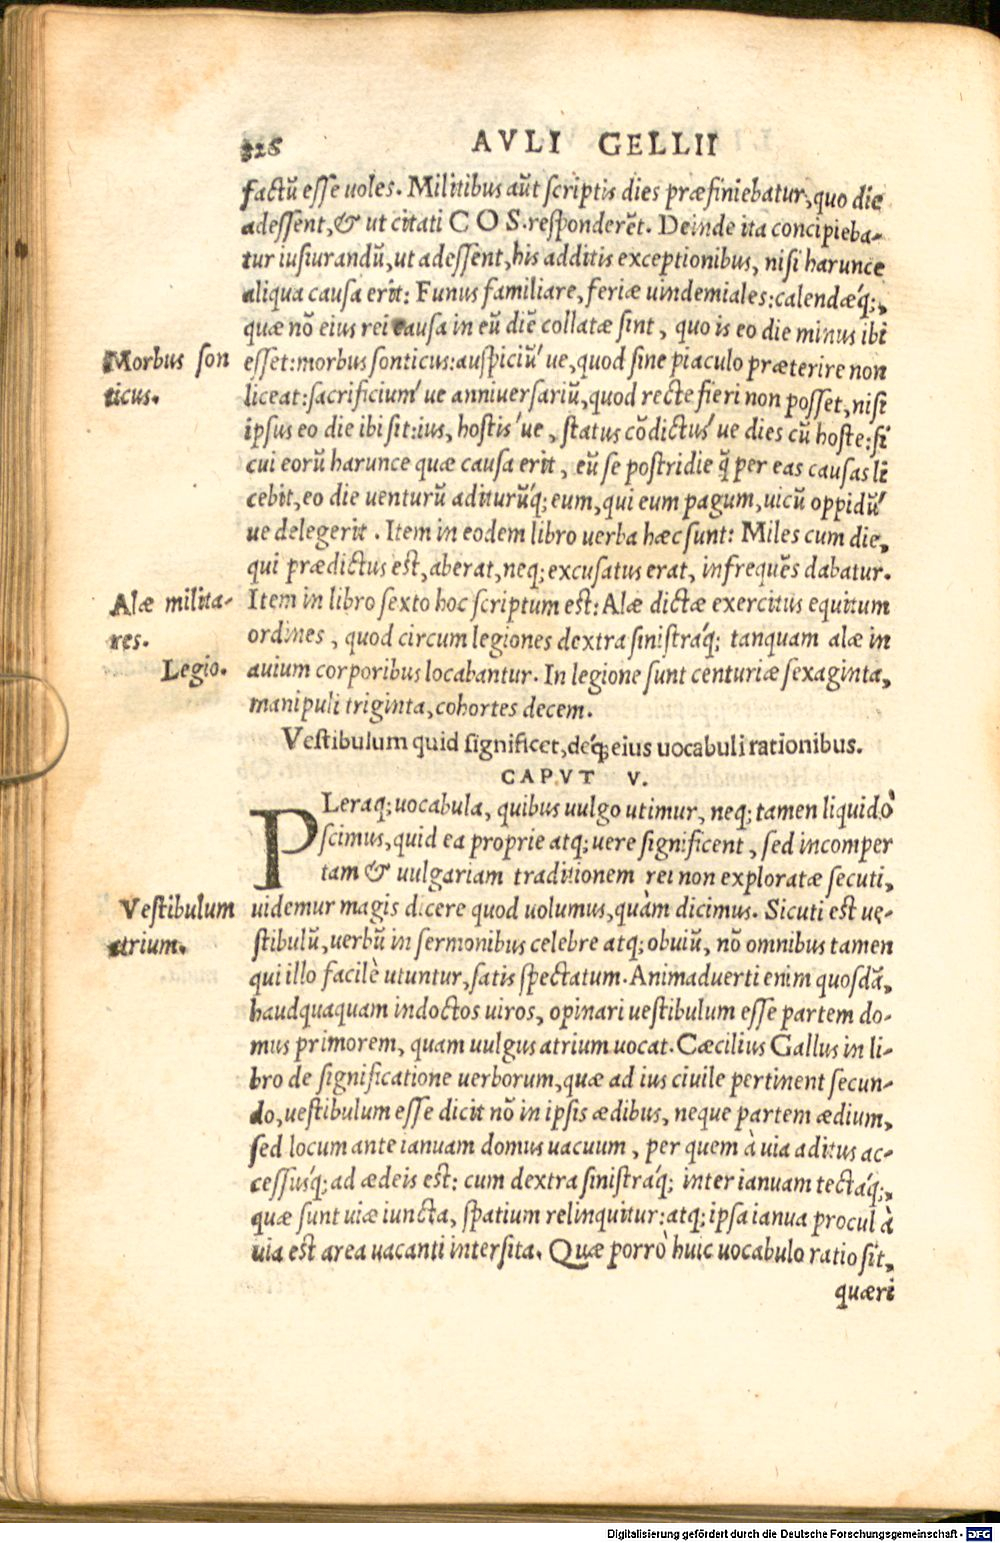 326 AVLI GELLII
factū esse uoles. Militibus aūt scriptis dies præfiniebatur, quo die
adessent, & ut citati C O S. responderēt. Deinde ita concipieba-
tur iusiurandū, ut adessent, his additis exceptionibus, nisi harunce
aliqua causa erit: Funus familiare, feriæ uindemiales: calendǽq;,
quæ nō eius rei causa in eū diē collatæ sint, quo is eo die minus ibi
Morbus son
esset: morbus sonticus: auspiciū́ ue, quod sine piaculo præterire non
ticus.
liceat: sacrificiuḿ ue anniuersariū, quod recte fieri non posset, nisi
ipsus eo die ibi sit: ius, hostiś ue, status cōdictuś ue dies cū hoste: si
cui eorū harunce quæ causa erit, eū se postridie q̄ per eas causas li
cebit, eo die uenturū aditurū́q; eum, qui eum pagum, uicū oppidū́
ue delegerit. Item in eodem libro uerba hæc sunt: Miles cum die,
qui prædictus est, aberat, neq; excusatus erat, infrequēs dabatur.
Alæ milita-
Item in libro sexto hoc scriptum est: Alæ dictæ exercitus equitum
res.
ordines, quod circum legiones dextra sinistráq; tanquam alæ in
Legio.
auium corporibus locabantur. In legione sunt centuriæ sexaginta,
manipuli triginta, cohortes decem.
Vestibulum quid significet, déq; eius uocabuli rationibus.
CAPVT V.
PLeraq; uocabula, quibus uulgo utimur, neq; tamen liquidò
scimus, quid ea proprie atq; uere significent, sed incomper
tam & uulgariam traditionem rei non exploratæ secuti,
Vestibulum
uidemur magis dicere quod uolumus, quàm dicimus. Sicuti est ue-
atrium.
stibulū, uerbū in sermonibus celebre atq; obuiū, nō omnibus tamen
qui illo facilè utuntur, satis spectatum. Animaduerti enim quosdā,
haudquaquam indoctos uiros, opinari uestibulum esse partem do-
mus primorem, quam uulgus atrium uocat. Cæcilius Gallus in li-
bro de significatione uerborum, quæ ad ius ciuile pertinent secun-
do, uestibulum esse dicit nō in ipsis ædibus, neque partem ædium,
sed locum ante ianuam domus uacuum, per quem à uia aditus ac-
cessuśq; ad ædeis est: cum dextra sinistráq; inter ianuam tectáq;,
quæ sunt uiæ iuncta, spatium relinquitur: atq; ipsa ianua procul à
uia est area uacanti intersita. Quæ porrò huic uocabulo ratio sit,
quæri
Digitalisierung gefördert durch die Deutsche Forschungsgemeinschaft - DFG